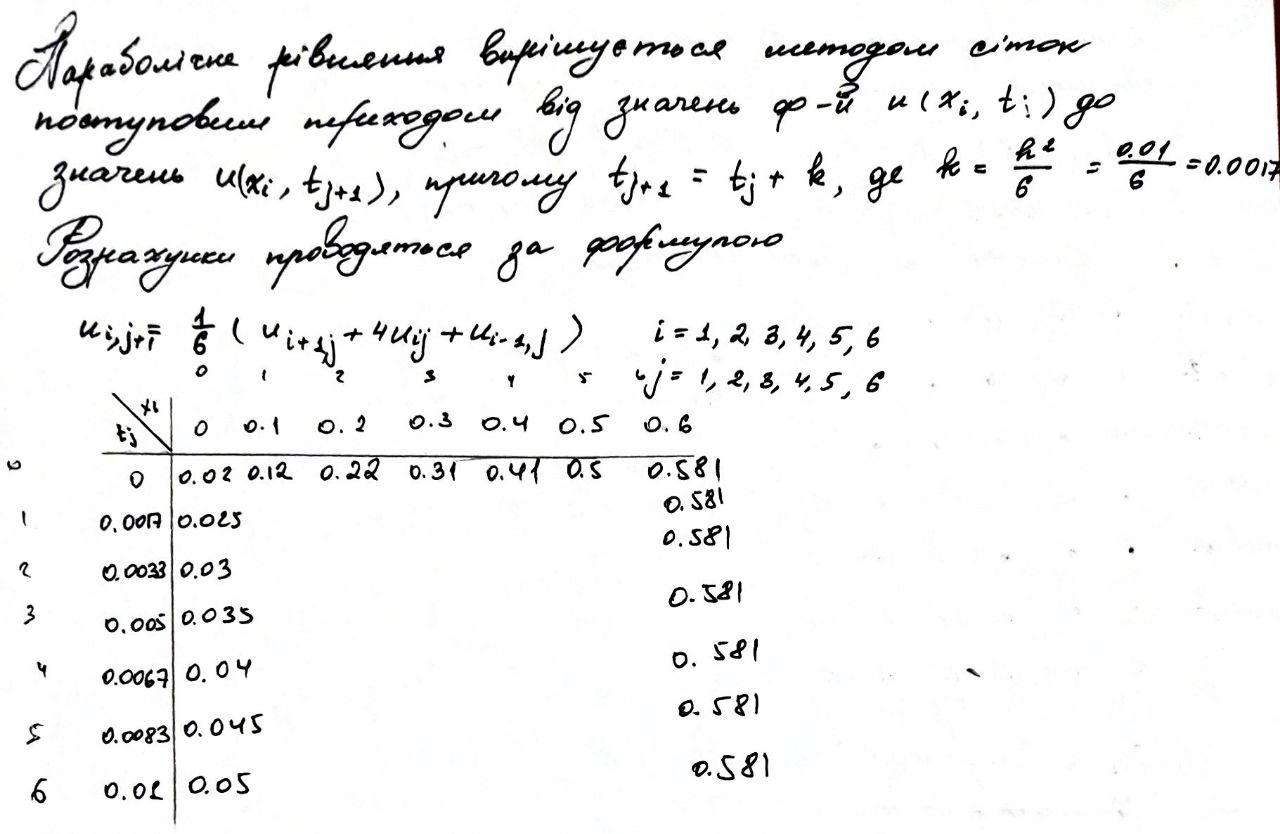 Параболічне рівняння вирішується методом сіток
поступовим приходом від значень ф-й u(x_i, t_j) до
значень u(x_i, t_{j+1}), причому t_{j+1} = t_j + k, де k = h²/6 = 0.01/6 = 0.0017
Розрахунки проводяться за формулою
u_{i,j+1} = 1/6 (u_{i+1,j} + 4u_{ij} + u_{i-1,j}) i = 1, 2, 3, 4, 5, 6
0 1 2 3 4 5 6 j = 1, 2, 3, 4, 5, 6
x_i
t_j 0 0.1 0.2 0.3 0.4 0.5 0.6
0 0 0.02 0.12 0.22 0.31 0.41 0.5 0.581
0.581
1 0.0017 0.025
0.581
2 0.0033 0.03
0.581
3 0.005 0.035
4 0.0067 0.04 0.581
5 0.0083 0.045 0.581
6 0.01 0.05 0.581